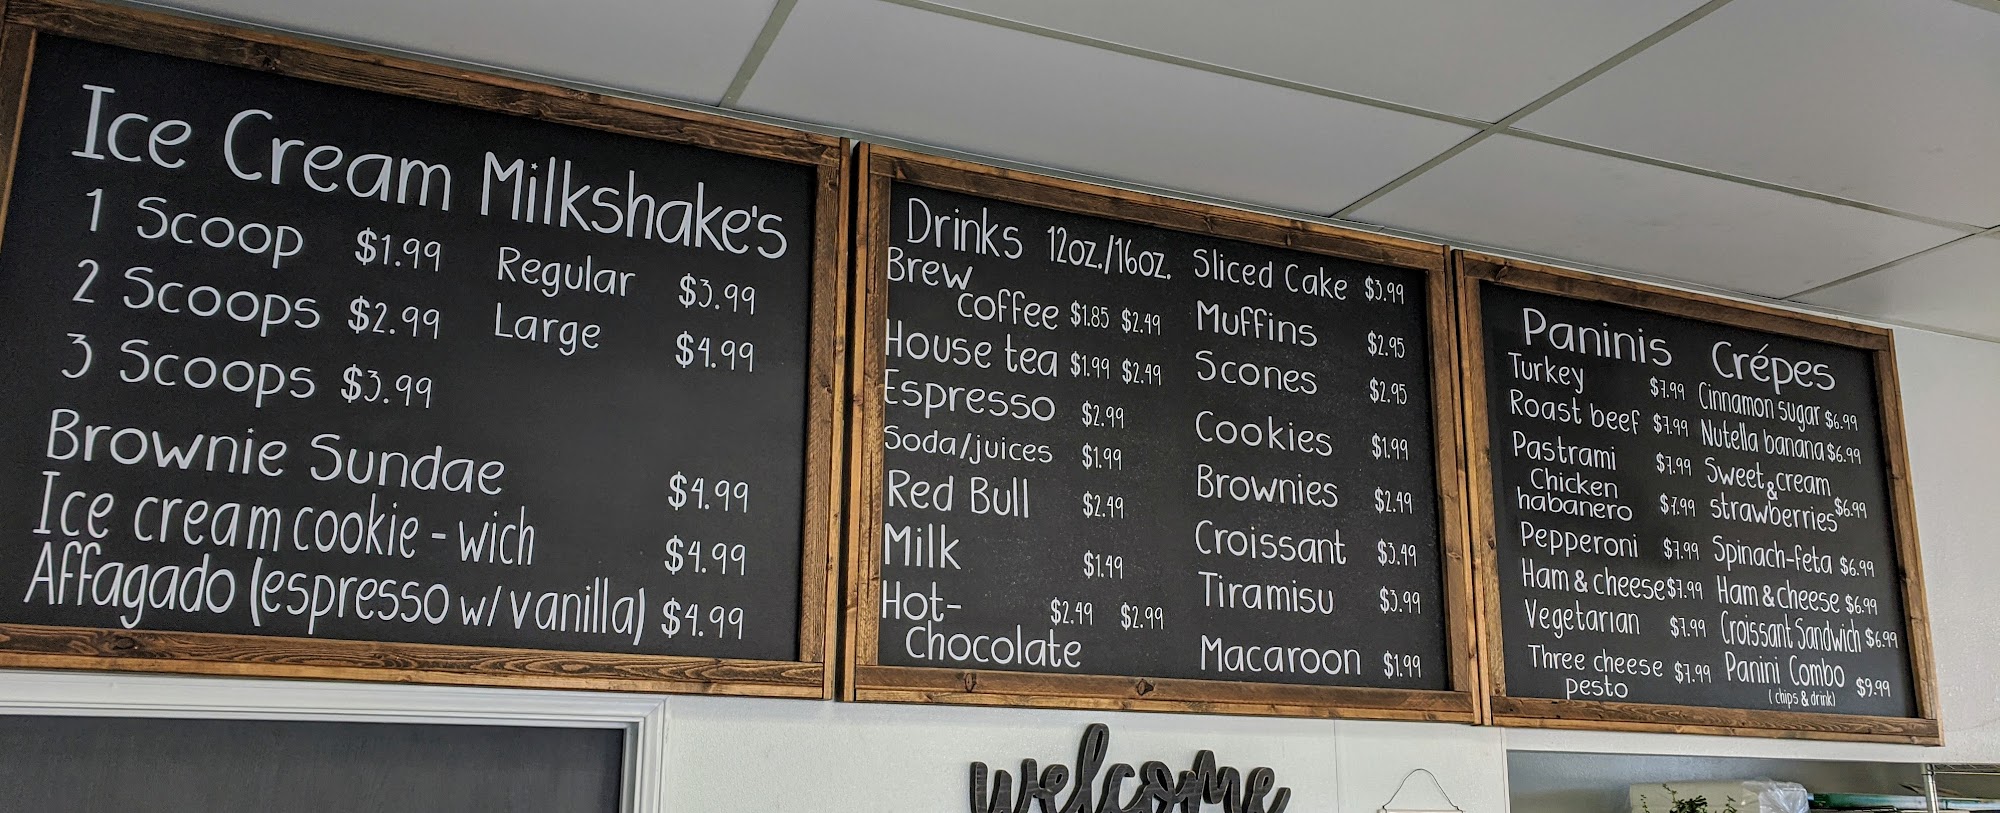 Ice Cream
1 Scoop $1.99
2 Scoops $2.99
3 Scoops $3.99
Milkshake's
Regular $3.99
Large $4.99
Brownie Sundae $4.99
Ice cream cookie - wich $4.99
Affagado (espresso w/ vanilla) $4.99
Drinks 12oz./16oz.
Brew
coffee $1.85 $2.49
House tea $1.99 $2.49
Espresso $2.99
Soda/juices $1.99
Red Bull $2.49
Milk $1.49
Hot- $2.49 $2.99
Chocolate
Sliced Cake $3.99
Muffins $2.95
Scones $2.95
Cookies $1.99
Brownies $2.49
Croissant $3.49
Tiramisu $3.99
Macaroon $1.99
Paninis
Turkey $7.99
Roast beef $7.99
Pastrami $7.99
Chicken
habanero $7.99
Pepperoni $7.99
Ham & cheese $7.99
Vegetarian $7.99
Three cheese $7.99
pesto
Crépes
Cinnamon sugar $6.99
Nutella banana $6.99
Sweet cream
&
strawberries $6.99
Spinach-feta $6.99
Ham & cheese $6.99
Croissant Sandwich $6.99
Panini Combo $9.99
(chips & drink)
welcome